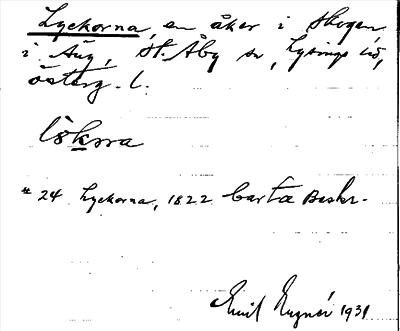 Lyckorna, en åker i Skogen
i Äng, St. Åby sn, Lysings hd,
österg. l.
lökrra
# 24 Lyckorna, 1822 Carta Beskr.
Emil 1931